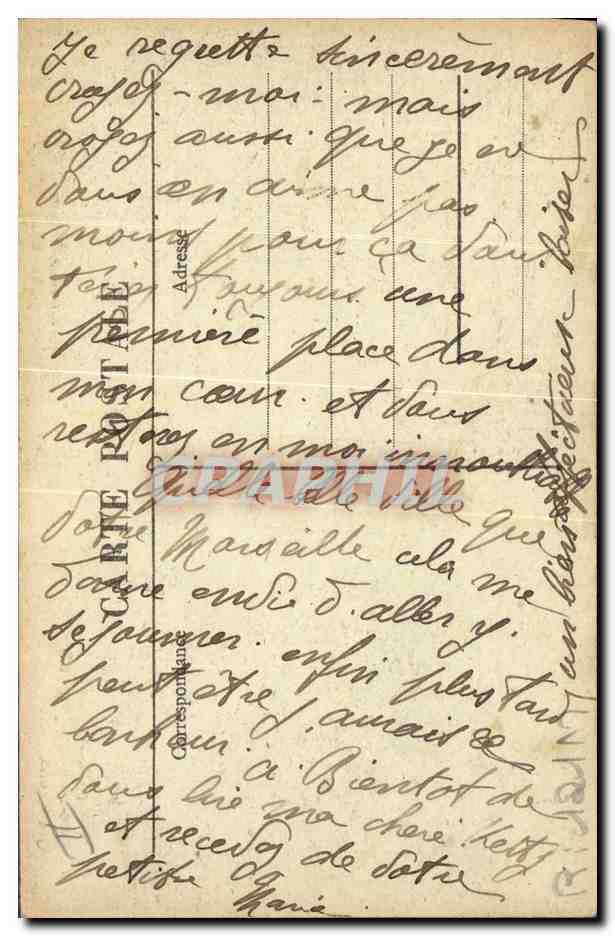 Je regrette sincèrement
croyez-moi - mais
croyez aussi que je ne
vous en aime pas
moins pour ça vous
tenez toujours une
première place dans
mon cœur. et vous
resterez en moi
Quelle belle ville que
votre Marseille cela me
donne envie d'aller y
séjourner. enfin plus tard
peut être j'aurais ce
bonheur.
à Bientot de
vous lire ma chère Ketty
et recevez de votre
petite
Maria
un bien affectueux baiser
CARTE POSTALE
Adresse
Correspondance
CPAPHIL
II